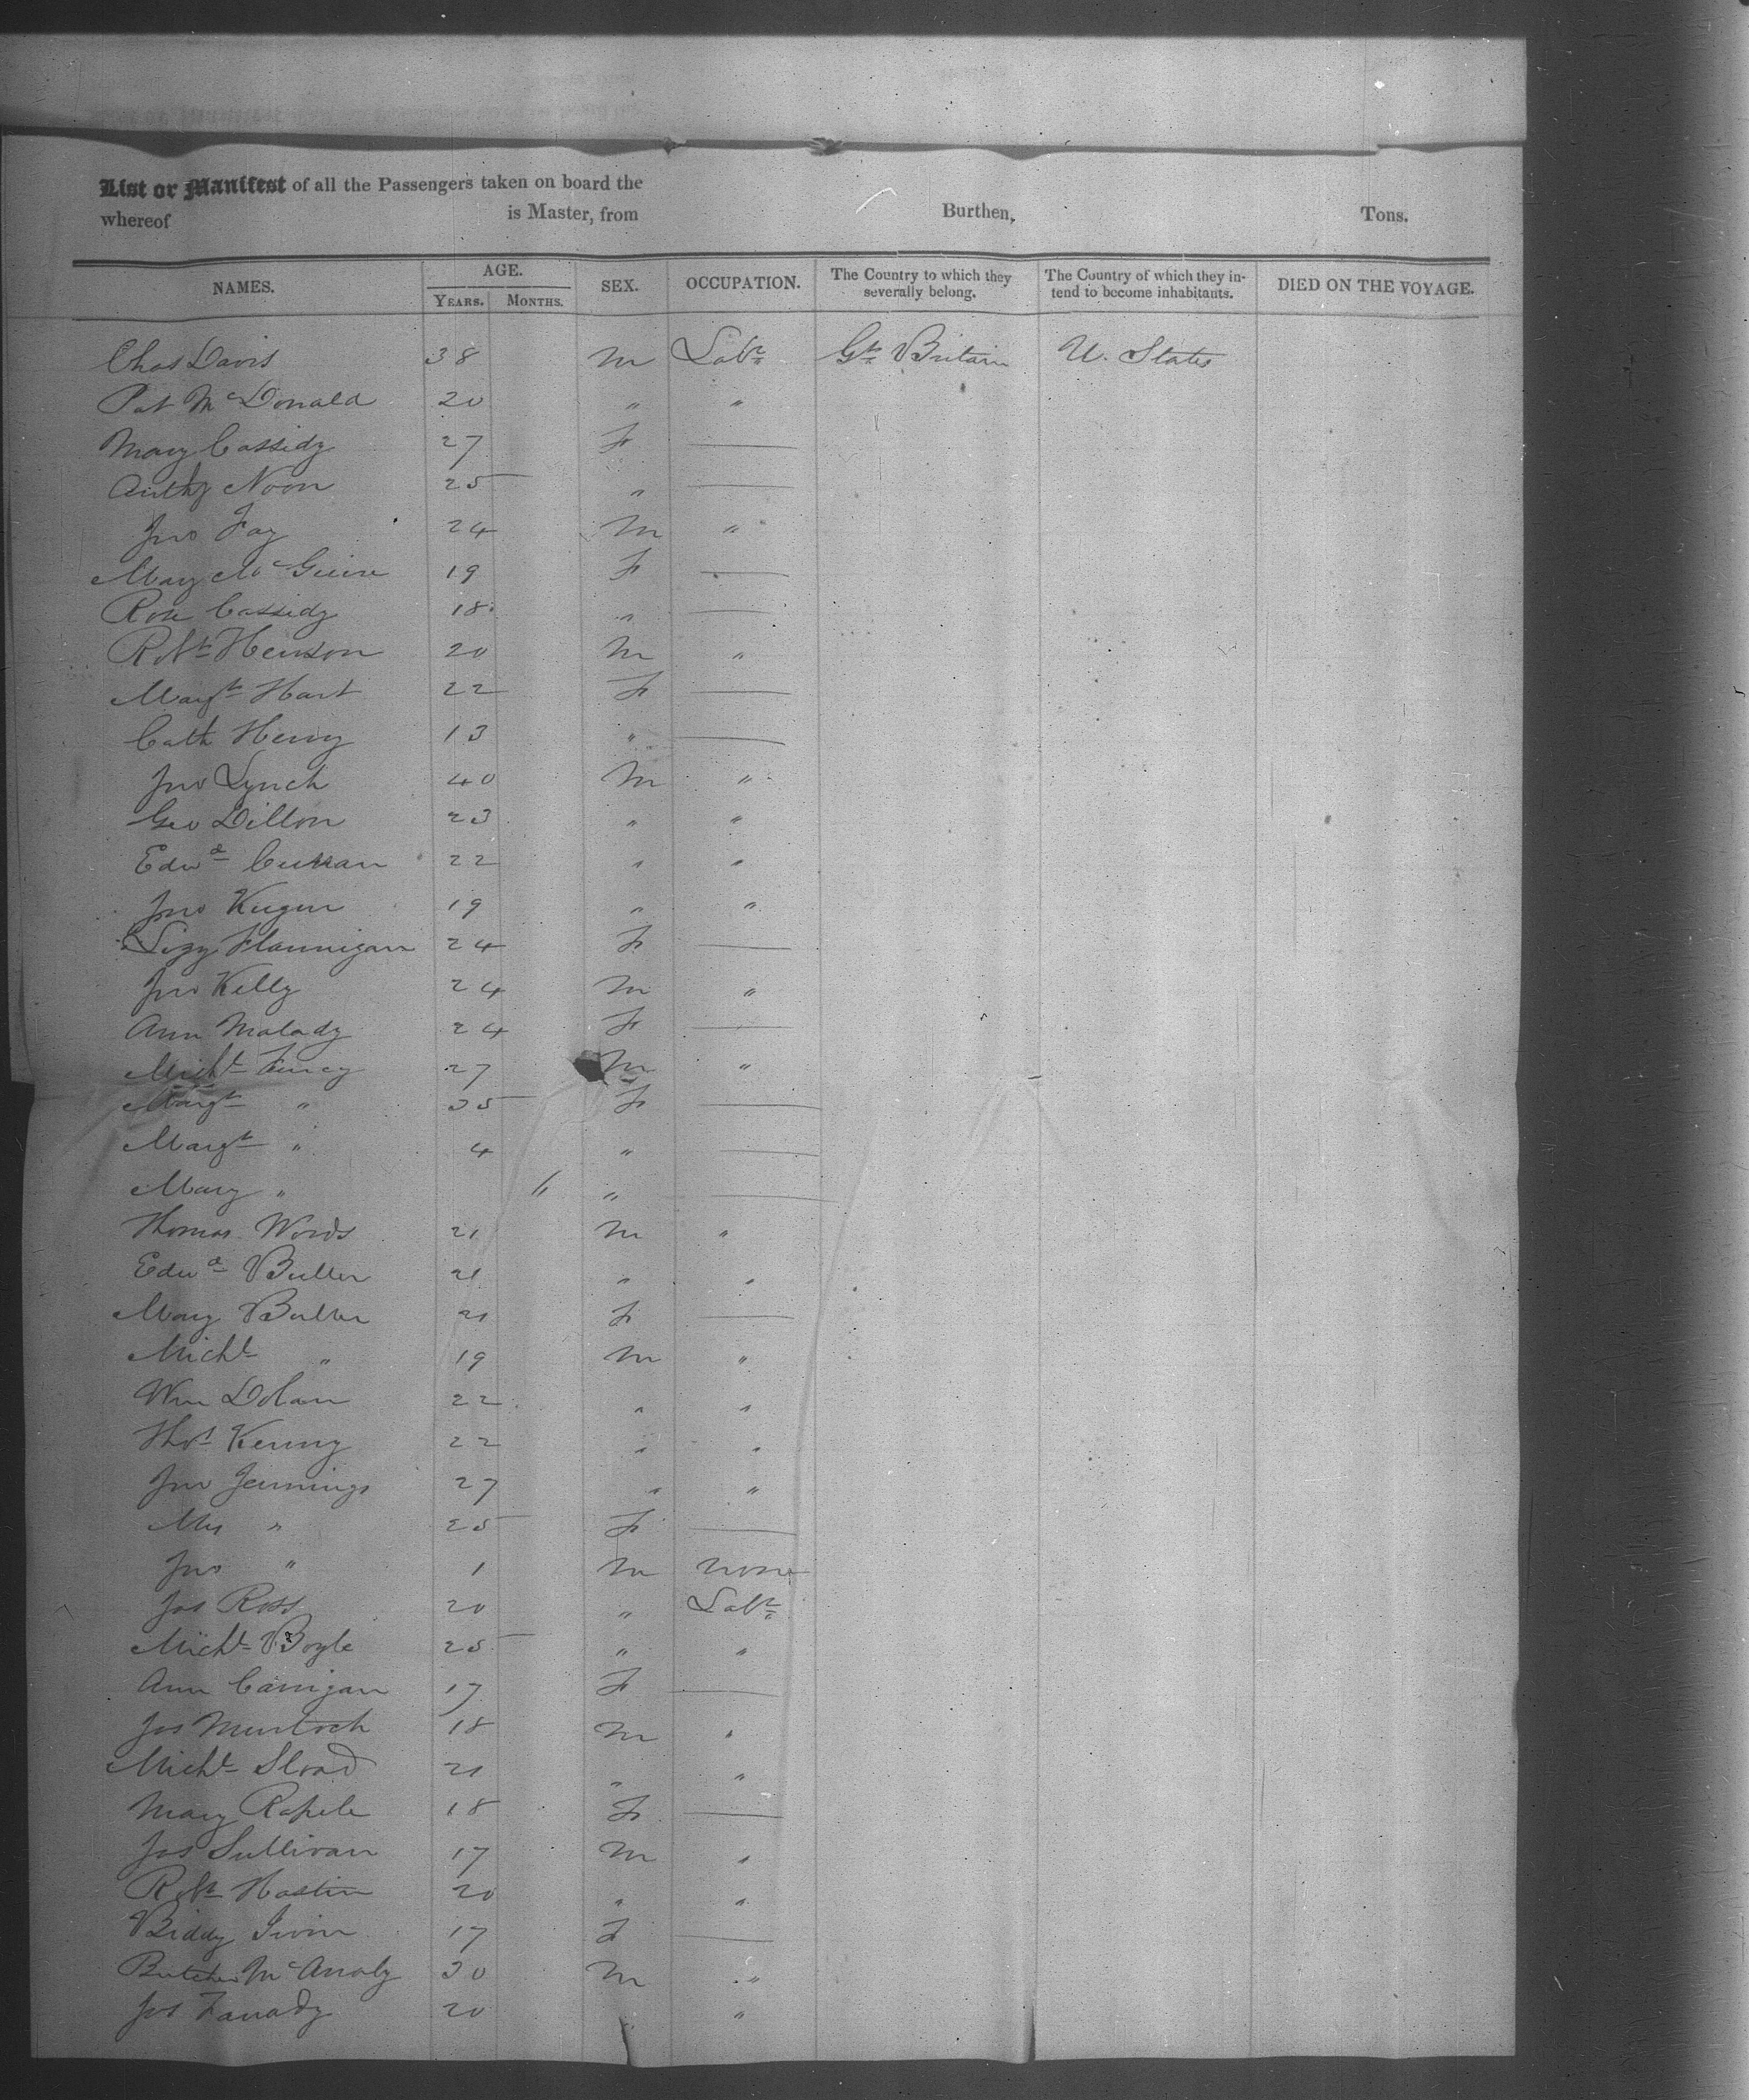 List or Manifest of all the Passengers taken on board the
whereof is Master, from Burthen, Tons.
NAMES. AGE. YEARS. MONTHS. SEX. OCCUPATION. The Country to which they severally belong. The Country of which they intend to become inhabitants. DIED ON THE VOYAGE.
Chas Davis 38 M Labr Gt Britain U. States
Pat McDonald 20 " "
Mary Cassidy 27 F —
Anthy Noon 25 " —
Jno Fay 24 M "
Mary McGuire 19 F —
Rose Cassidy 18 " —
Robt Henson 20 M "
Margt Hart 22 F —
Cath Henry 13 " —
Jno Lynch 40 M "
Geo Dillon 23 " "
Edwd Curran 22 " "
Jno Keegan 19 " "
Lizzy Flannigan 24 F —
Jno Kelly 24 M "
Ann Malady 24 F —
Michl 27 M "
Margt " 35 F —
Margt " 4 " —
Mary " " —
Thomas Woods 21 M "
Edwd Butler 21 " "
Mary Butler 21 F —
Michl " 19 M "
Wm Dolan 22 " "
Thos Kenny 22 " "
Jno Jennings 27 " "
Mrs " 25 F —
Jno " 1 M none
Jas Ross 20 " Labr
Michl Boyle 25 " "
Ann Carrigan 17 F —
Jas Murtoch 18 M "
Michl 21 " "
Mary 18 F —
Jas Sullivan 17 M "
Robt Hastin 20 " "
Biddy Irvin 17 F —
McAnaly 30 M "
Jas 20 " "